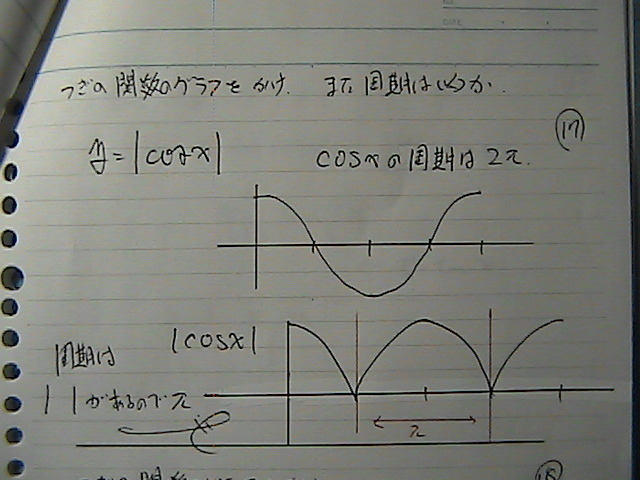 つぎの関数のグラフをかけ. また周期はいくつか.
(17)
y = |cosx|
cosxの周期は2π.
|cosx|
周期は
| |があるのでπ
π